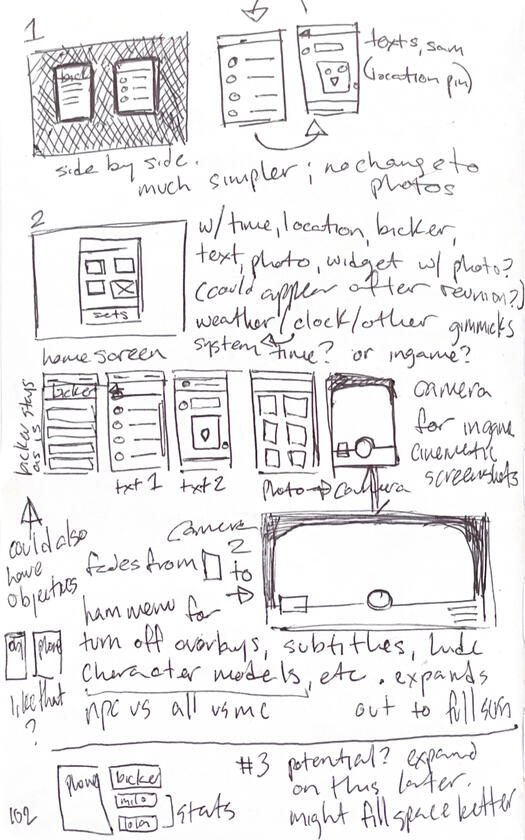 1
bicker
texts, sam
(location pin)
side by side.
much simpler ; no change to
photos
2
w/time, location, bicker,
text, photo, widget w/ photo?
(could appear after reunion?)
weather/clock/other gimmicks
sets
homescreen
system time? or ingame?
bicker stays
as is
bicker
txt 1
txt 2
photo → camera
camera
for ingame
cinematic
screenshots
could also
have
objectives
camera
fades from 2
to
ham menu for
turn off overlays, subtitles, hide
character models, etc. expands
npc vs all vs mc
out to full scrn
phone
like that
?
phone
bicker
milo
lola
stats
#3 potential? expand
on this later.
might fill space better
102